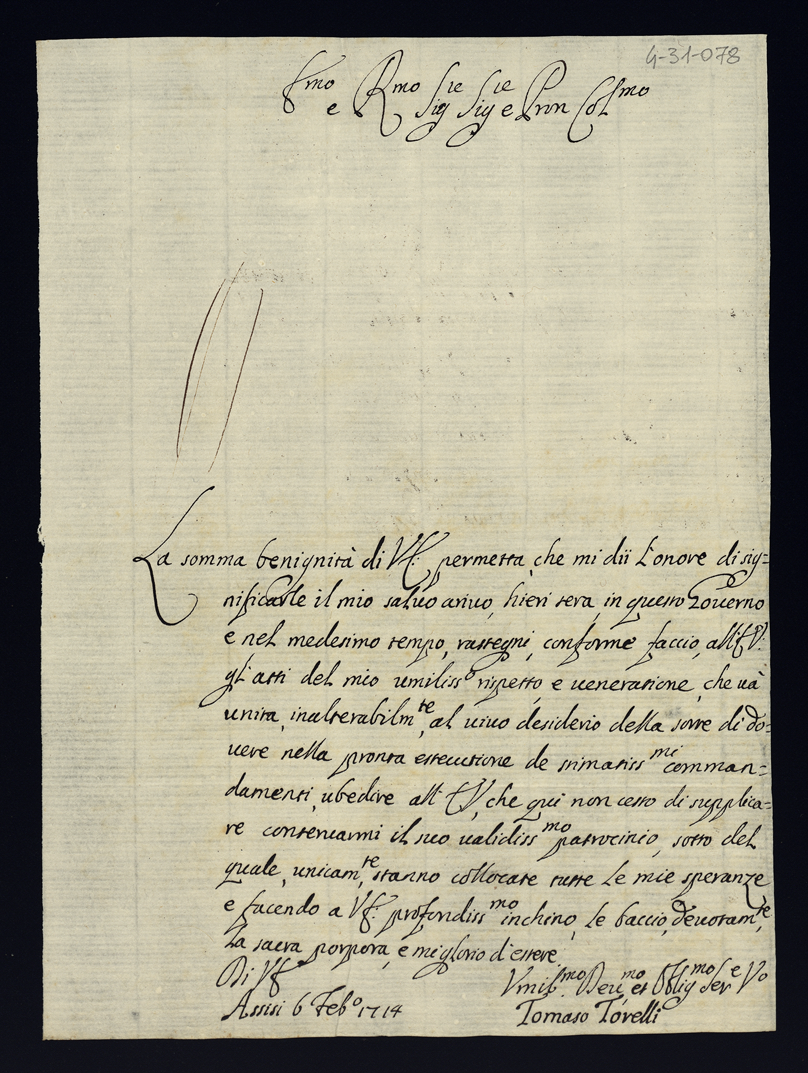 4-31-078
E.mo e R.mo Sig.re Sig.re e Pron Col.mo
La somma benignità di V.E. permetta, che mi dii l'onore di sig=
nificarle il mio salvo arivo, hieri sera, in questo Governo
e nel medesimo tempo, rassegni, conforme faccio, all'E.V.
gl'atti del mio umiliss.o rispetto, e veneratione, che và
unita, inalterabilm.te, al vivo desiderio della sorte di do=
vere nella pronta essecutione de stimatiss.mi comman=
damenti, ubedire all'E.V., che qui non cesso di supplica=
re conservarmi il suo validiss.mo patrocinio, sotto del
quale, unicam.te, stanno collocate tutte le mie speranze
e facendo a V.E. profondiss.mo inchino, le baccio, devotam.te,
la sacra porpora, e mi glorio d'essere
Di V.E.
Umilis.mo Dev.mo et Oblig.mo Ser.e Vo
Assisi 6 Feb.o 1714
Tomaso Torelli